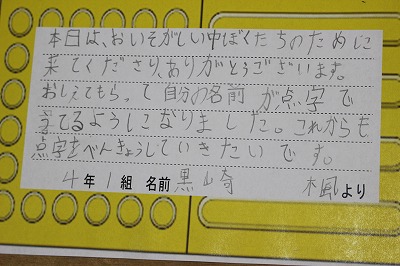 本日は、おいそがしい中ぼくたちのために
来てくださり、ありがとうございます。
おしえてもらって自分の名前が点字で
言てるようになりました。これからも
点字をべんきょうしていきたいです。
4年1組 名前 黒山奇 楓より